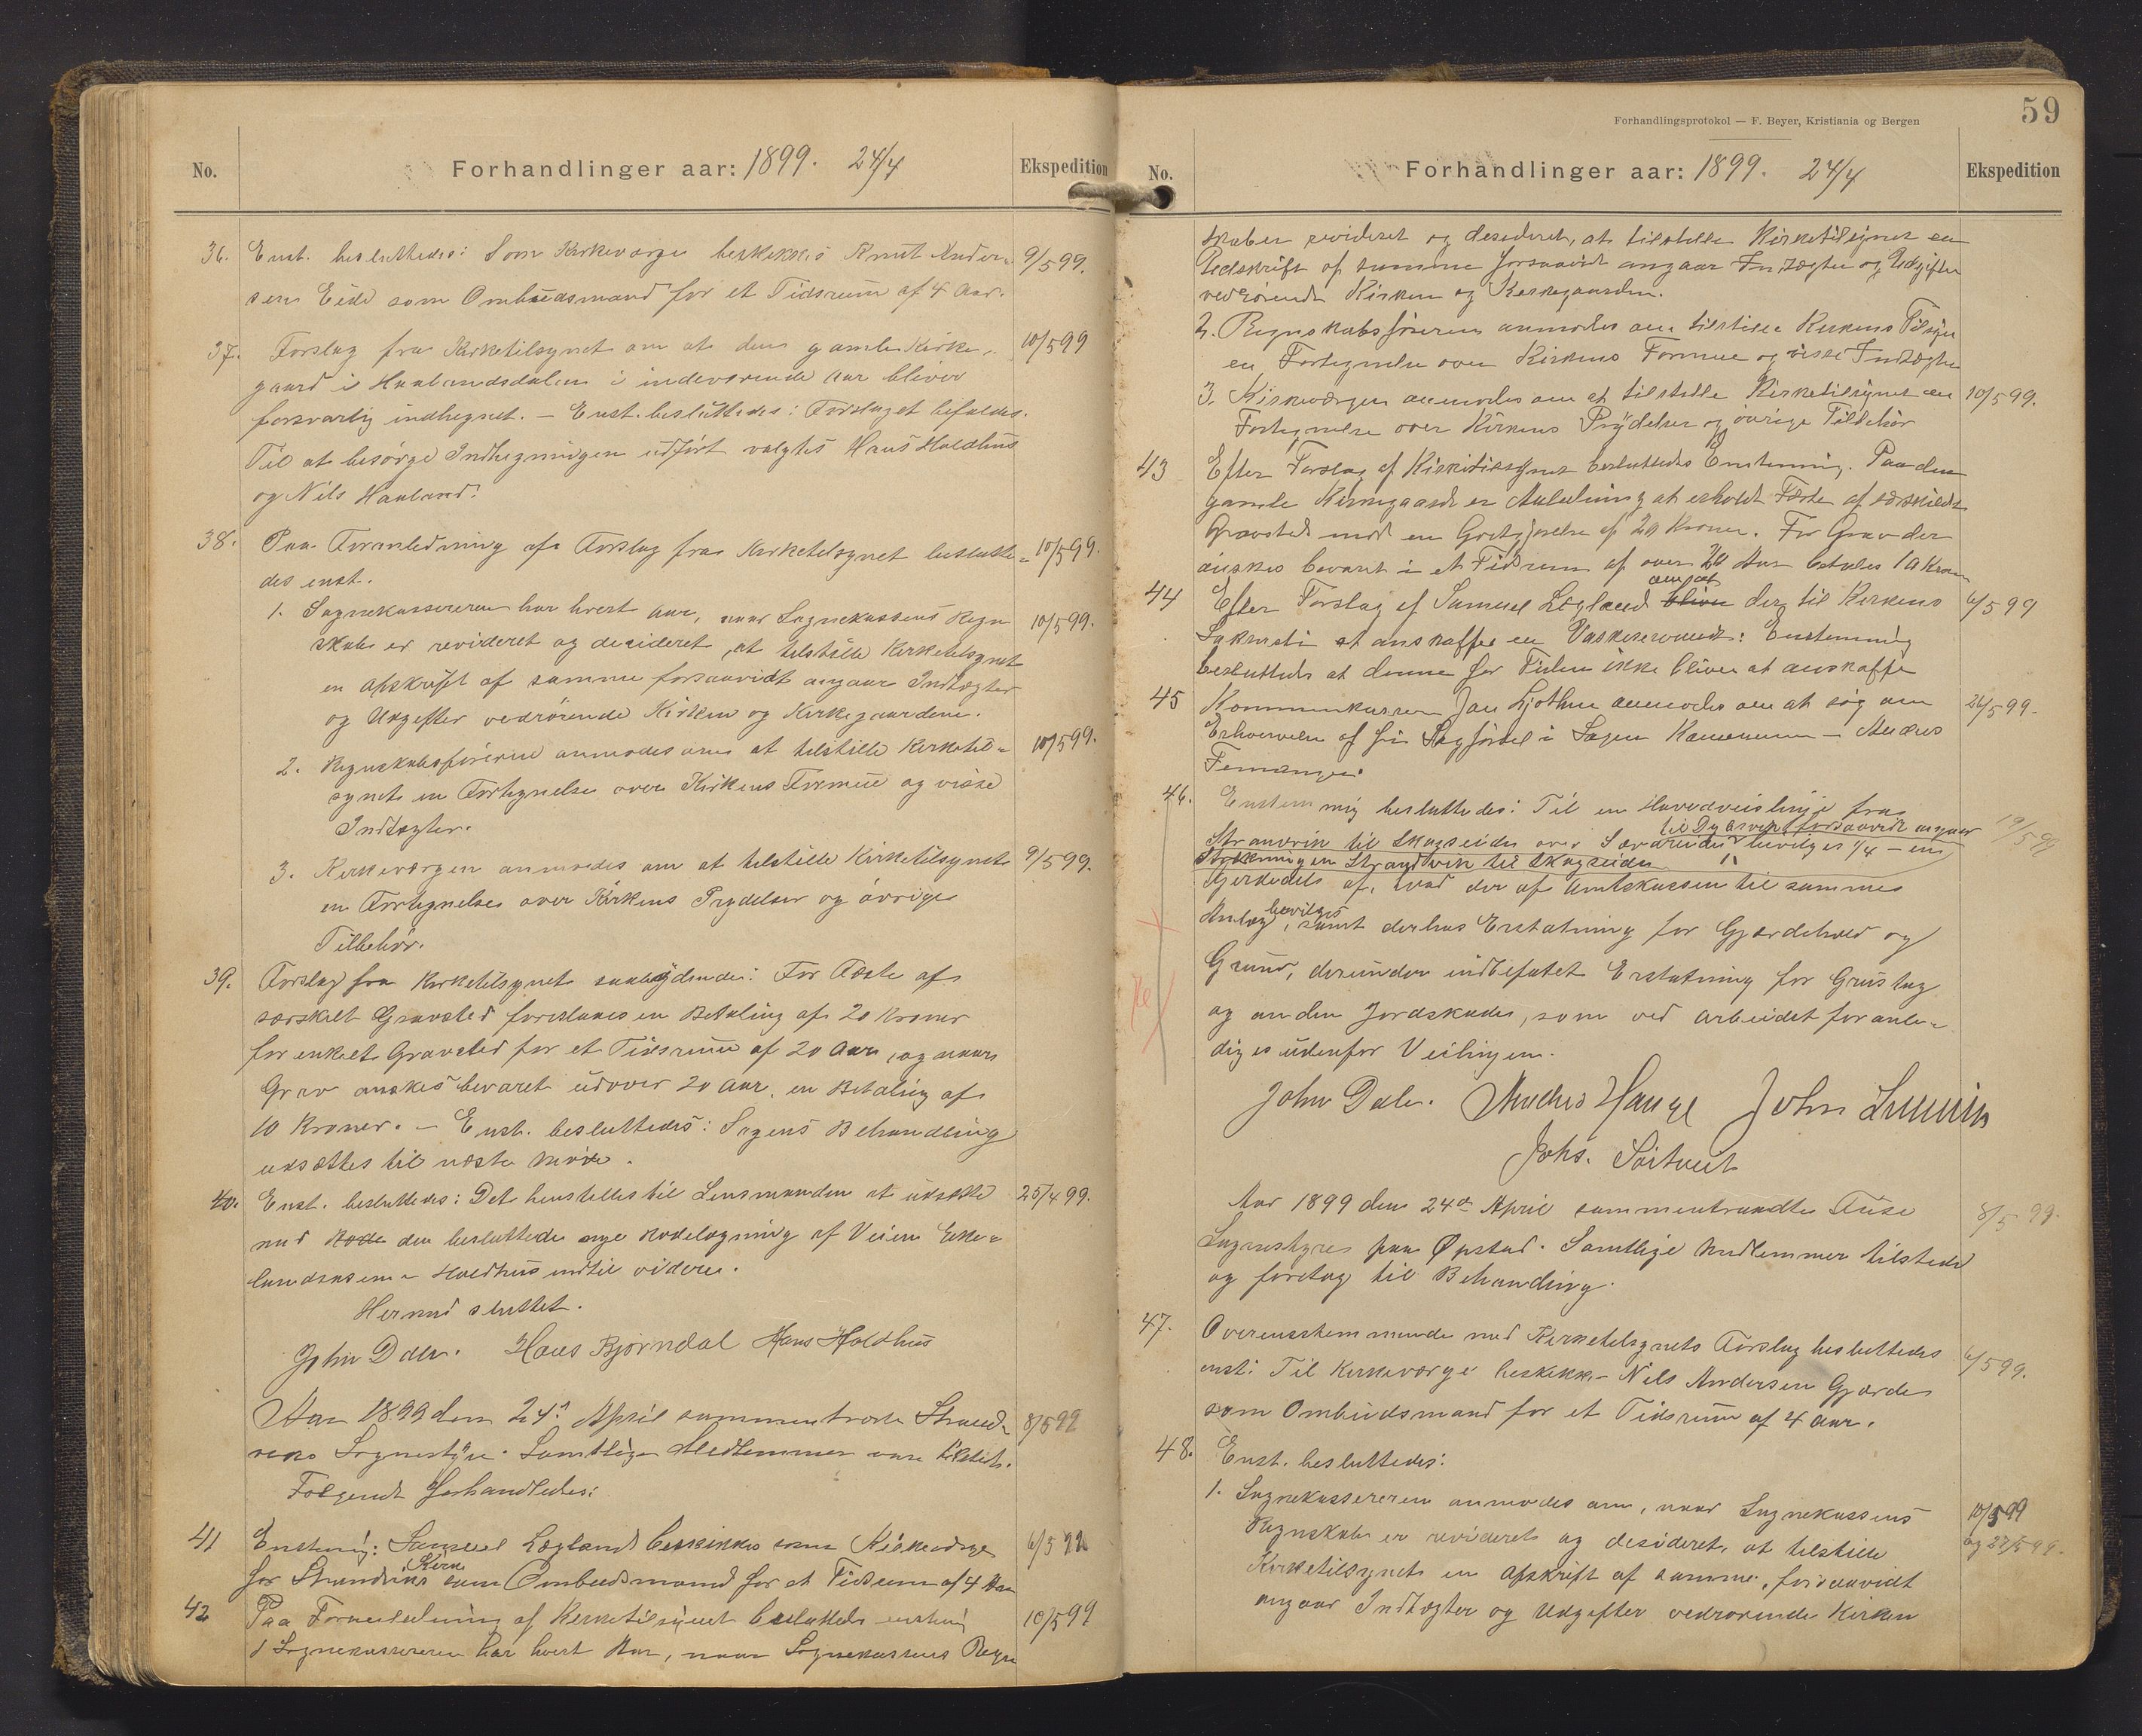 No.
Forhandlinger aar: 1899. 24/4
Ekspedition
36. Enst. besluttedes: Som Kirkeværge beskikkes Knut Ander- 9/5 99.
sen Eide som Ombudsmand for et Tidsrum af 4 Aar.
37. Forslag fra Kirketilsynet om at den gamle Kirke- 10/5 99
gaard i Haalandsdalen i indeværende Aar bliver
forsvarlig indhegnet. – Enst. besluttedes: Forslaget bifaldes.
Til at besørge Indhegningen udført valgtes Hans Holdhus
og Nils Haaland.
38. Paa Foranledning af Forslag fra Kirketilsynet beslutte- 10/5 99.
des enst.
1. Sognekassereren har hvert Aar, naar Sognekassens Regn 10/5 99.
skab er revideret og decideret, at tilstille Kirketilsynet
en Afskrift af samme forsaavidt angaar Indtægter
og Udgifter vedrørende Kirken og Kirkegaardene.
2. Regnskabsføreren anmodes om at tilstille Kirketil- 10/5 99.
synet en Fortegnelse over Kirkens Formue og visse
Indtægter.
3. Kirkeværgen anmodes om at tilstille Kirketilsynet 9/5 99.
en Fortegnelse over Kirkens Prydelser og øvrige
Tilbehør.
39. Forslag fra Kirketilsynet saalydende: For Fæste af
særskilt Gravsted foreslaaes en Betaling af 20 Kroner
for enkelt Gravsted for et Tidsrum af 20 Aar, og naar
Grav ønskes bevaret udover 20 Aar, en Betaling af
10 Kroner. – Enst. besluttedes: Sagens Behandling
udsættes til næste Møde.
40. Enst. besluttedes: Det henstilles til Lensmanden at udsætte 25/4 99.
med Rode den besluttede nye Rodelægning af Veien Eke-
landsosen – Holdhus indtil videre.
Hermed sluttet.
John Dale. Hans Bjørndal Hans Holdhus
Aar 1899 den 24de April sammentraadte Strand- 8/5 99
viks Sognestyre. Samtlige Medlemmer var tilstede.
Følgende forhandledes:
41 Enstemig: Samuel Løgland beskikkes som Kirkeværge 6/5 99
for Strandviks Kirke som Ombudsmand for et Tidsrum af 4 Aar
42 Paa Foranledning af Kirketilsynet besluttedes enstemig 10/5 99
1 Sognekassereren har hvert Aar, naar Sognekassens Regn
59
Forhandlingsprotokol — F. Beyer, Kristiania og Bergen
No.
Forhandlinger aar: 1899. 24/4
Ekspedition
skaber revideret og desideret, at tilstille Kirketilsynet en
Udskrift af samme forsaavidt angaar Indtægter og Udgifter
vedrørende Kirken og Kirkegaarden.
2. Regnskabsføreren anmodes om tilstille Kirkens Tilsyn
en Fortegnelse over Kirkens Formue og visse Indtægter
3. Kirkeværgen anmodes om at tilstille Kirketilsynet en 10/5 99.
Fortegnelse over Kirkens Prydelser og øvrige Tilbehør
43 Efter Forslag af Kirketilsynet besluttedes Enstemmig. Paa den
gamle Kirkegaard er Anledning at erholde Fæste af særskildt
Gravsted mod en Godtgjørelse af 20 Kroner. For Grav der
ønskes bevaret i et Tidsrum af over 20 Aar betales 10 Kroner
44 Efter Forslag af Samuel Løgland bliver om at der til Kirkens 6/5 99
Sakresti at anskaffe en Vaskeservant: Enstemmig
besluttedes at denne for Tiden ikke bliver at anskaffe
45 Kommunekasserer Jan Ljothun anmodes om at søge om 26/5 99.
Erhvervelse af fri Sagførsel i Sagen Kommunen – Andreas
Femanger.
46. Enstemmig besluttedes: Til en Hovedveislinje fra
Strandvik til Skogseide over Sævareide bevilges 1/4 – en 19/5 99
til Dybsvik forsaavidt angaar
Strækningen Strandvik til Skogseide
fjerdedels af, hvad der af Amtskassen til samme
Anlæg bevilges, samt derhos Erstatning for Gjærdehold og
Grund, derunder indbefattet Erstatning for Grustag
og anden Jordskade, som ved Arbeidet foranle-
diges udenfor Veilinjen.
John Dale. Andres Hauge John
Johs. Søitveit
Aar 1899 den 24de April sammentraadte Fuse 8/5 99.
Sognestyre paa Øpstad. Samtlige Medlemmer tilstede
og foretog til Behandling.
47. Overensstemmende med Kirketilsynets Forslag besluttedes 6/5 99.
enst: Til Kirkeværge beskikkes Nils Andersen Gjærde
som Ombudsmand for et Tidsrum af 4 Aar.
48. Enst. besluttedes:
1. Sognekassereren anmodes om, naar Sognekassens 10/5 99
Regnskab er revideret og desideret, at tilstille og 27/5 99.
Kirketilsynet en Afskrift af samme, forsaavidt
angaar Indtægter og Udgifter vedrørende Kirken